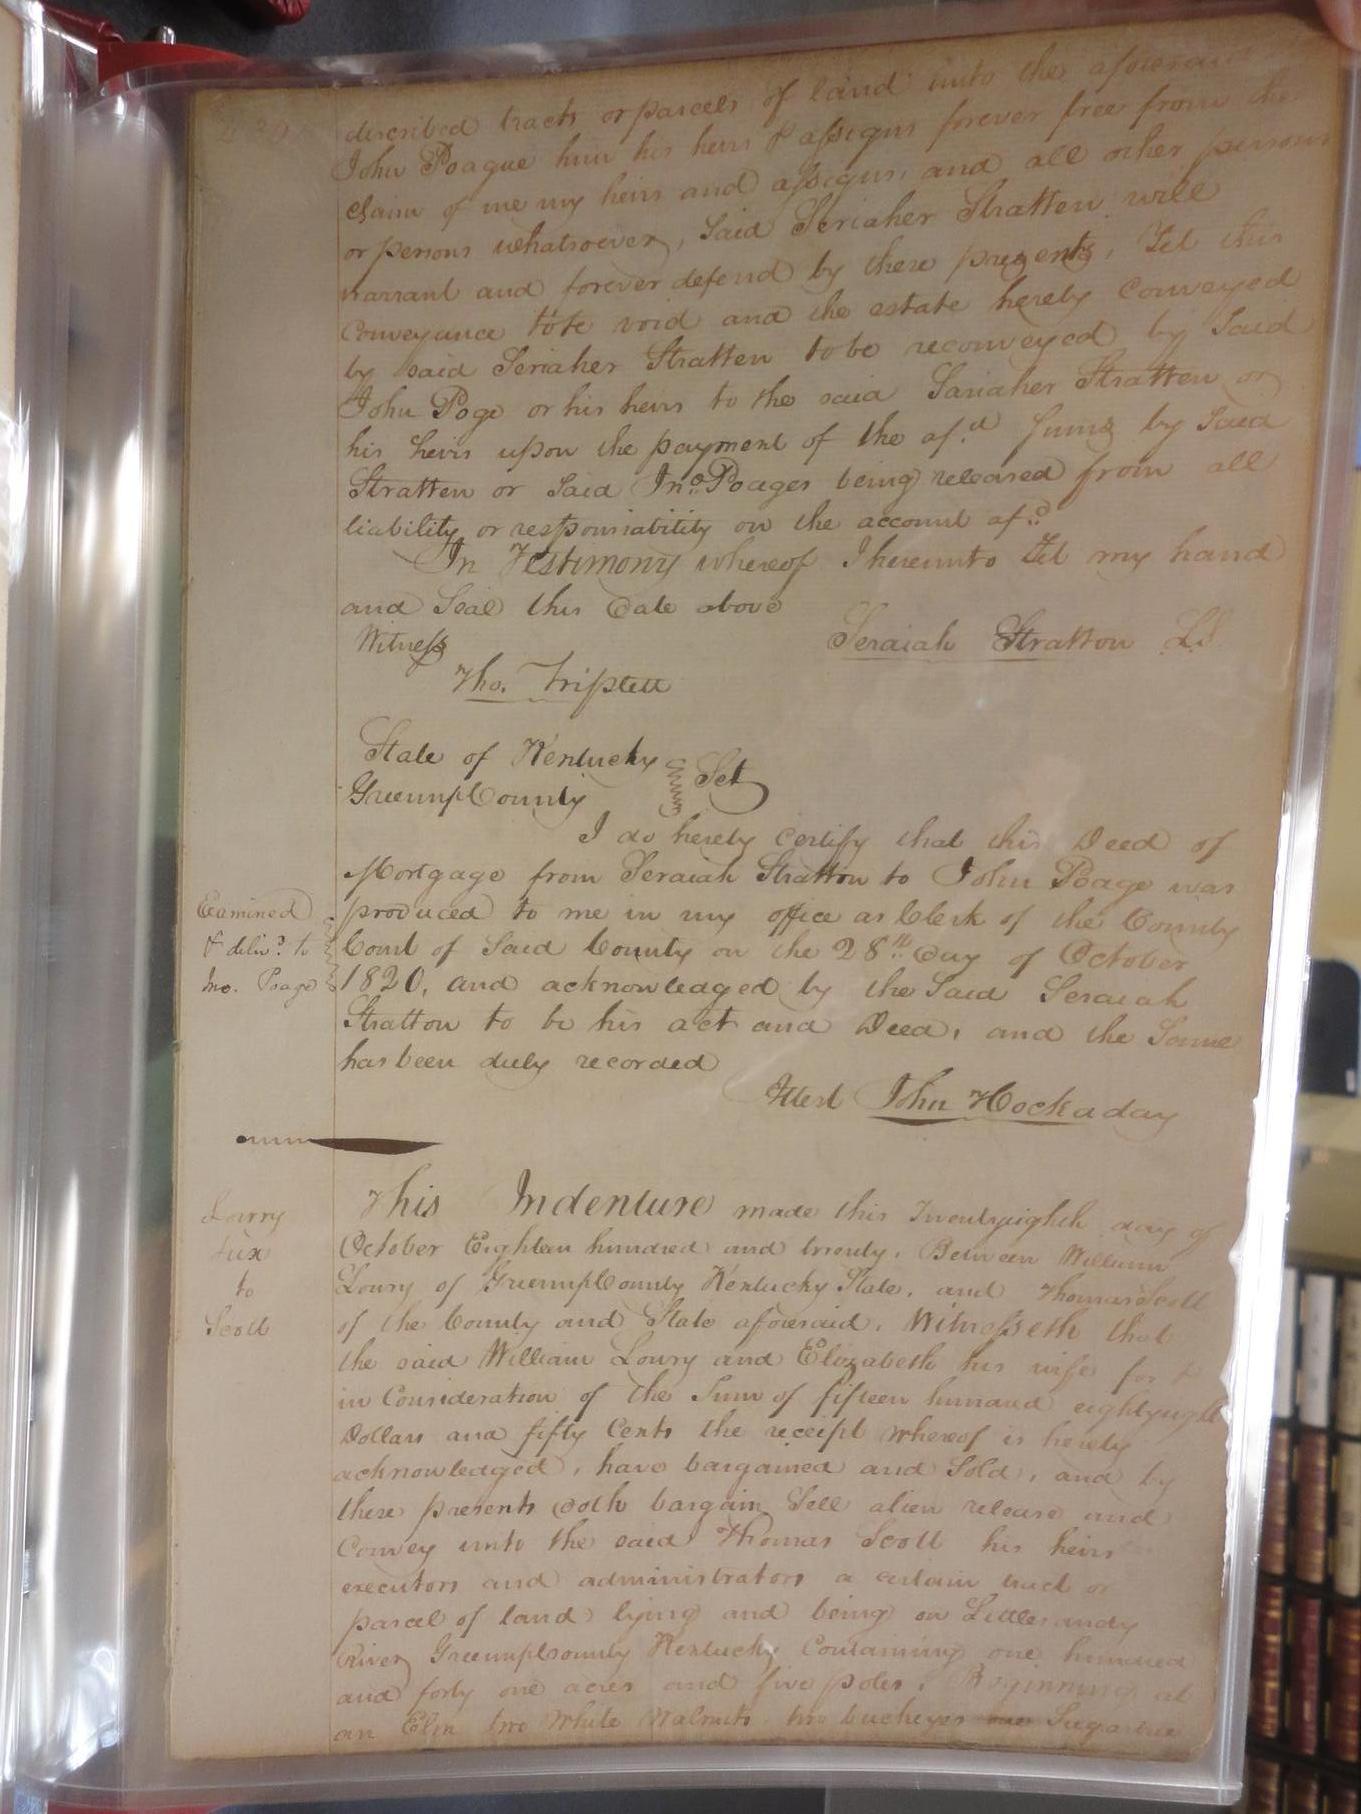 described tracts or parcels of land unto the aforesaid
John Poague him his heirs & assigns forever free from the
claim of me my heirs and assigns, and all other persons
or persons whatsoever, Said Seriaher Stratten will
warrant and forever defend by these presents, Yet this
Conveyance to be void and the estate hereby Conveyed
by said Seriaher Stratten to be reconveyed by Said
John Poge or his heirs to the said Sariaher Stratten or
his heirs upon the payment of the afd Sums by Said
Stratten or Said Jno Poages being released from all
liability or responsiability on the account afd
In Testimony whereof I hereunto Set my hand
and Seal this Date above
Witness
Seraiah Stratton LS
Tho. Triplett
State of Kentucky
Greenup County
Sct
I do hereby Certify that this Deed of
Mortgage from Seraiah Stratton to John Poage was
produced to me in my office as Clerk of the County
Court of Said County on the 28th Day of October
1820, and acknowledged by the Said Seraiah
Stratton to be his act and Deed, and the Same
has been duly recorded
Attest John Hockaday
Examined
& delivd to
Jno. Poage
Lowry
&ux
to
Scott
This Indenture made this Twentyeighth day of
October Eighteen hundred and twenty. Between William
Lowry of Greenup County Kentucky State, and Thomas Scott
of the County and State aforesaid. Witnesseth that
the said William Lowry and Elizabeth his wife for
in Consideration of the Sum of fifteen hundred eightyeight
Dollars and fifty Cents the receipt whereof is hereby
acknowledged, have bargained and Sold, and by
these presents doth bargain Sell alien release and
Convey unto the said Thomas Scott his heirs
executors and administrators a certain tract or
parcel of land lying and being on Little sandy
River Greenup County Kentucky Containing one hundred
and forty one acres and five poles. Beginning at
an Elm two White Walnuts two buckeyes Sugartree